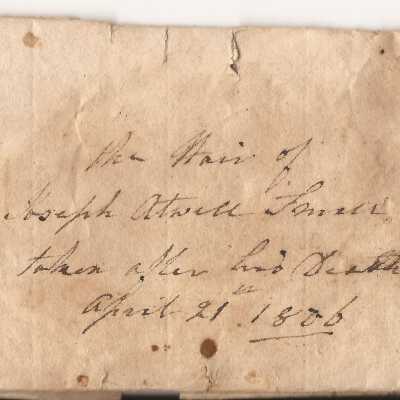 the Hair of
Joseph Atwell
taken after his Death
April 21st 1806